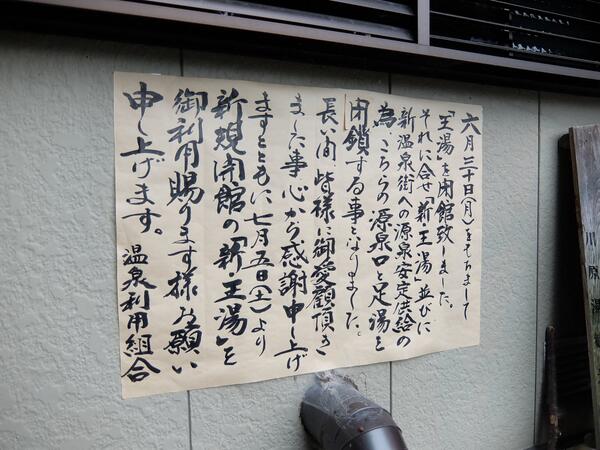 六月三十日(月)をもちまして
「王湯」を閉館致しました。
それに合せ「新王湯」並びに
新温泉街への源泉安定供給の
為、こちらの源泉口と足湯を
閉鎖する事となりました。
長い間、皆様に御愛顧頂き
ました事心から感謝申し上げ
ますとともに七月五日(土)より
新規開館の「新王湯」を
御利用賜ります様お願い
申し上げます。
温泉利用組合
川原湯